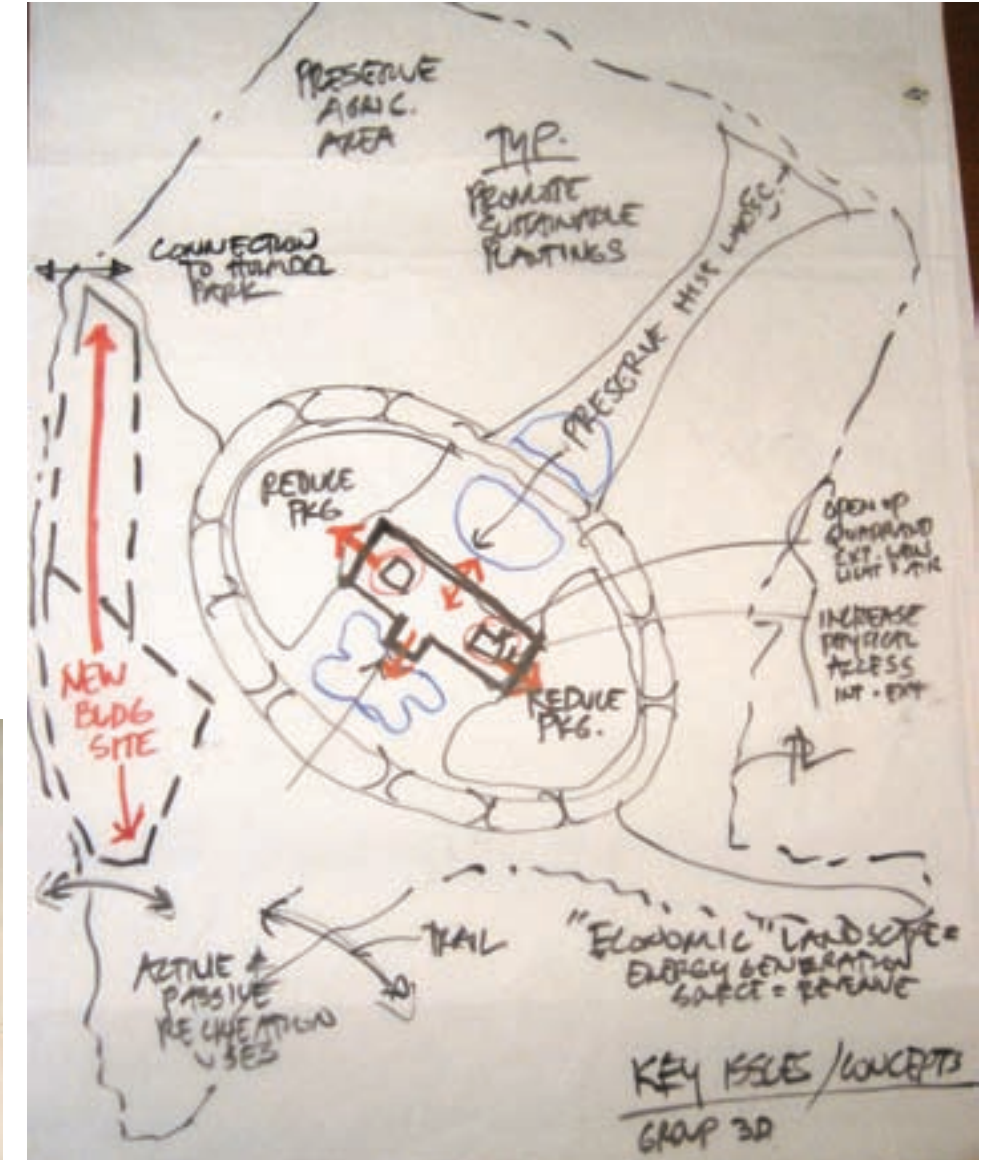 PRESERVE
AGRIC.
AREA
TYP.
PROMOTE
SUSTAINABLE
PLANTINGS
CONNECTION
TO HOLMDEL
PARK
PRESERVE HIST LANDSC.
REDUCE
PKG
OPEN UP
EXT.
LIGHT & AIR
INCREASE
PHYSICAL
ACCESS
INT - EXT
NEW
BLDG
SITE
REDUCE
PKG.
TRAIL
ACTIVE &
PASSIVE
RECREATION
USES
"ECONOMIC" LANDSCAPE =
ENERGY GENERATION
SOURCE = REVENUE
KEY ISSUES / CONCEPTS
GROUP 3D